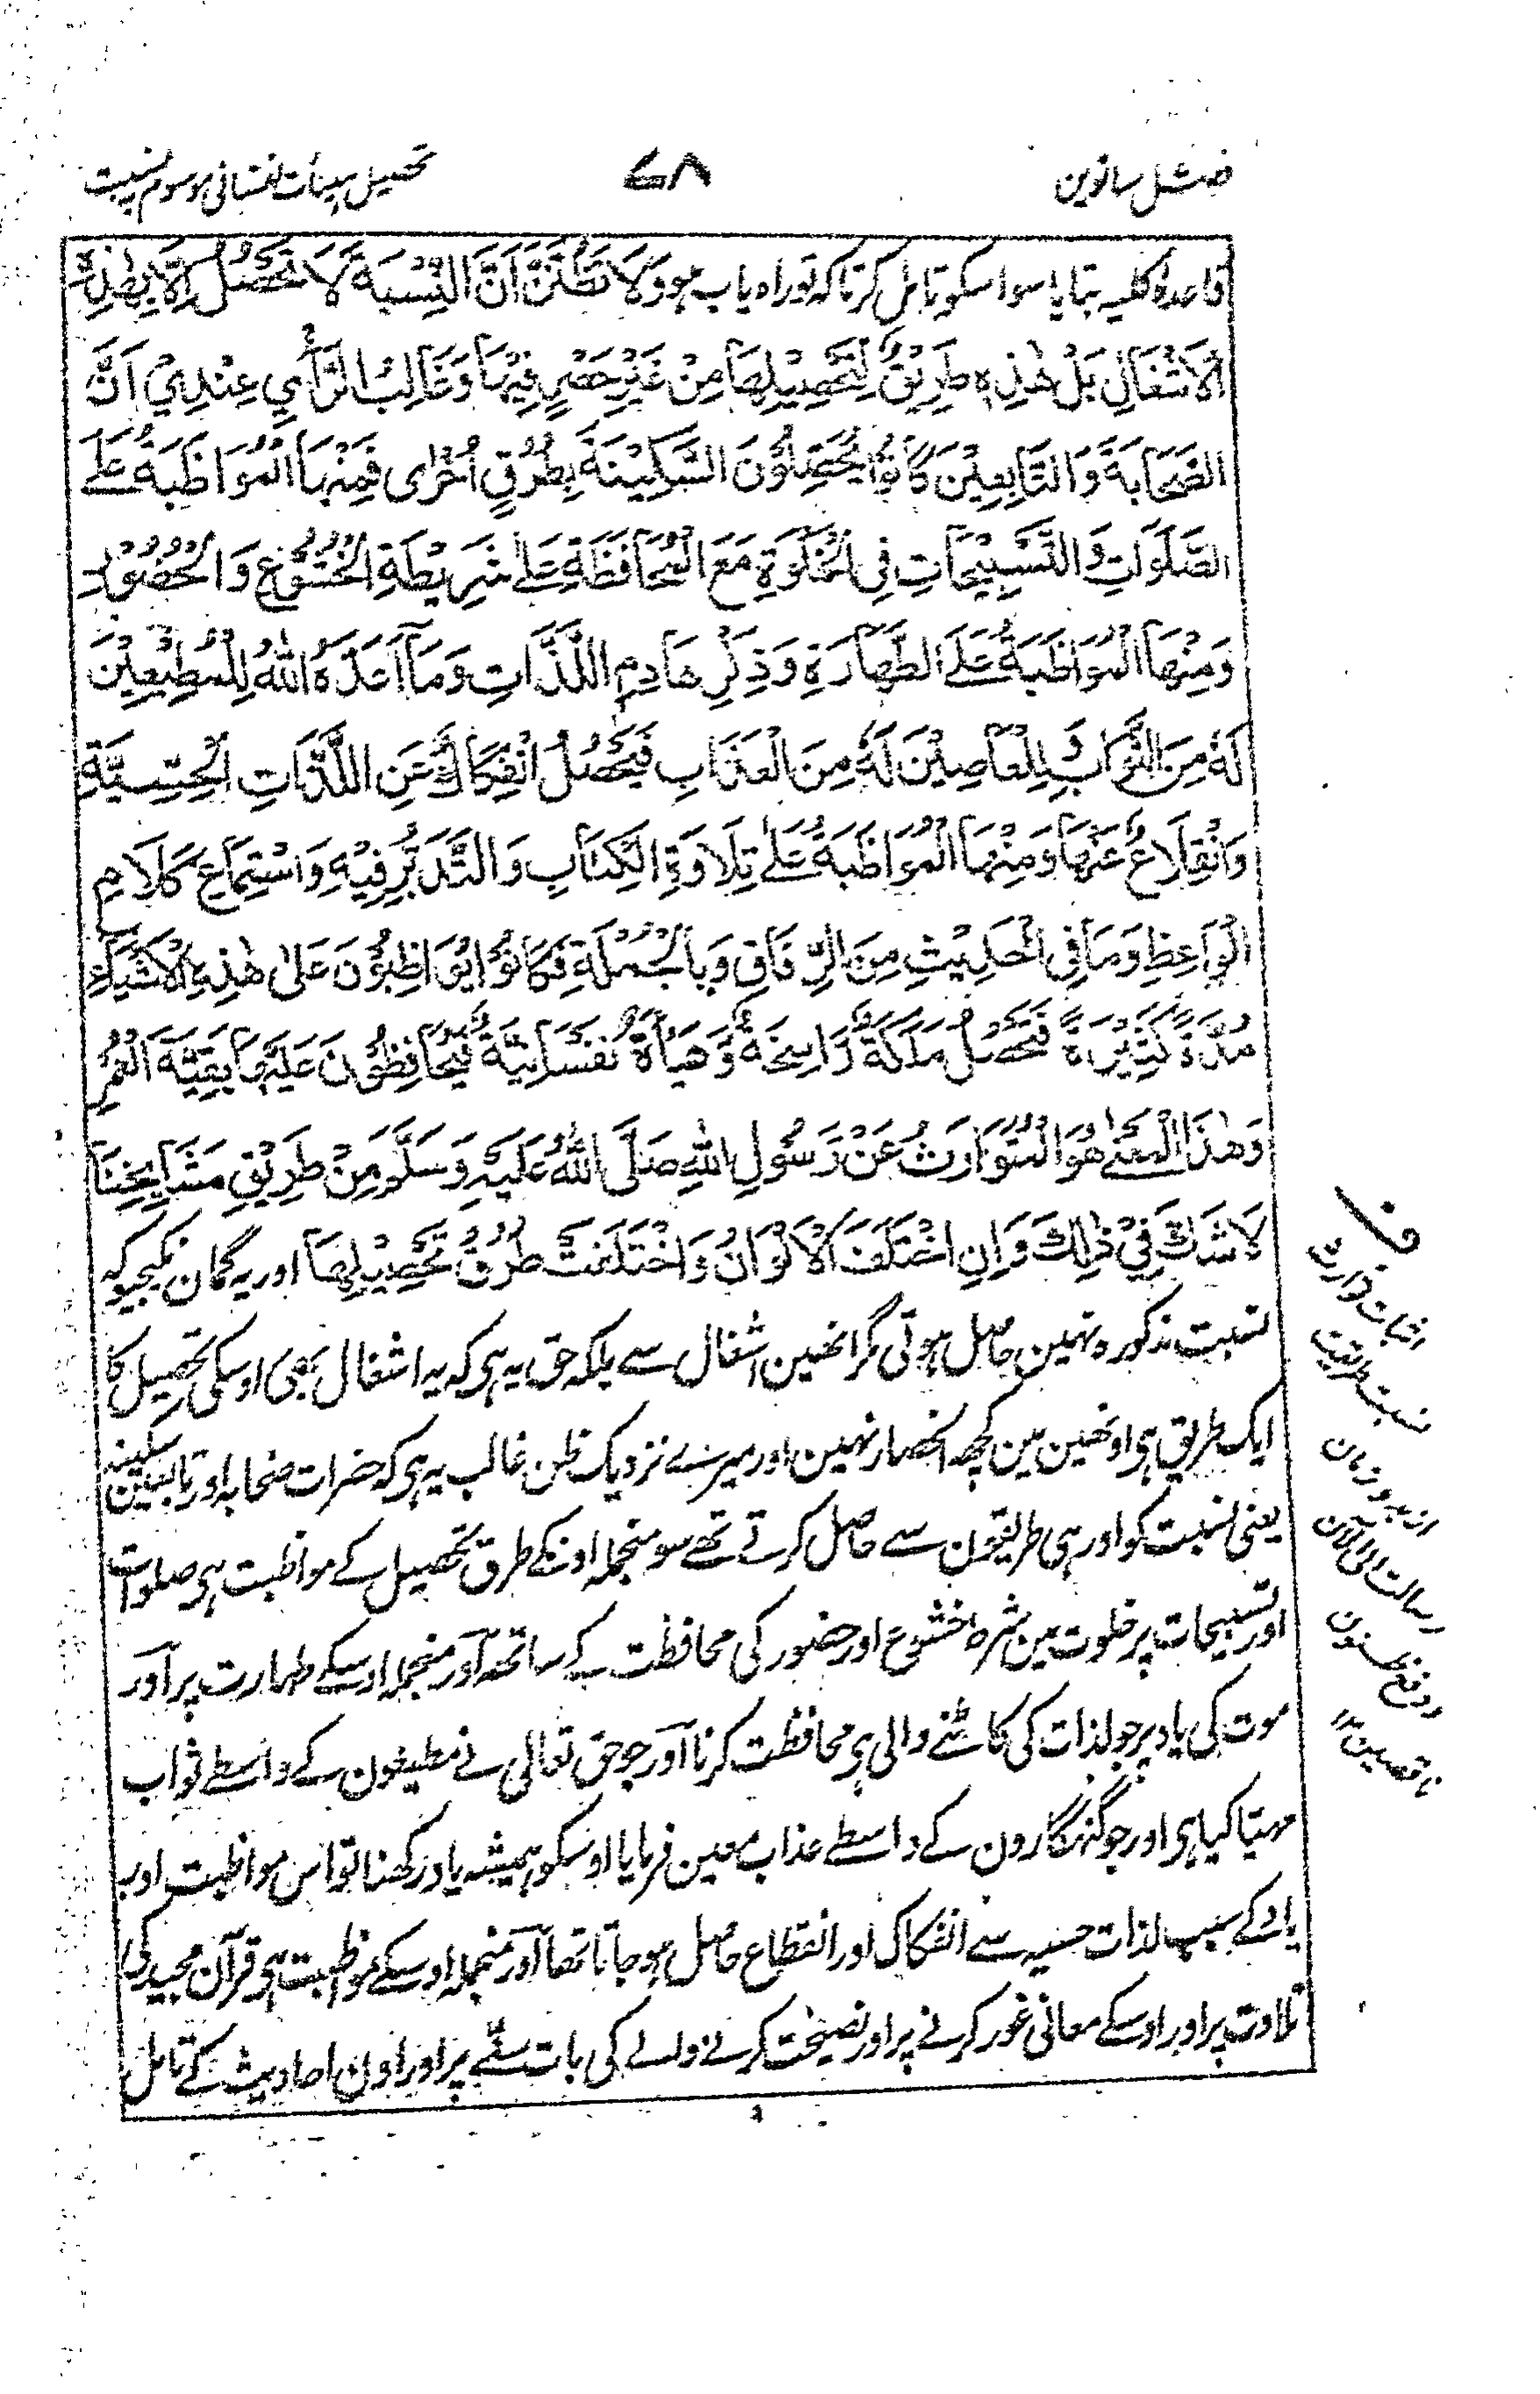 فصل ساتوین
۷۸
تحصیل ہیئات نفسانی موسوم نسبت
قاعدۂ کلیہ بتایا سو اسکو تامل کر تاکہ تو راہ یاب ہو وَلَا تَظُنَّنَّ اَنَّ النِّسْبَةَ لَا تَحْصُلُ اِلَّا بِهٰذِهِ
الْاَشْغَالِ بَلْ هٰذِهٖ طَرِيْقٌ لِتَحْصِيْلِهَا مِنْ غَيْرِ حَصْرٍ فِيْهَا وَغَالِبُ الرَّأْيِ عِنْدِيْ اَنَّ
الصَّحَابَةَ وَالتَّابِعِيْنَ كَانُوْا يُحَصِّلُوْنَ السَّكِيْنَةَ بِطُرُقٍ اُخْرٰى فَمِنْهَا الْمُوَاظَبَةُ عَلَى
الصَّلَوَاتِ وَالتَّسْبِيْحَاتِ فِى الْخَلْوَةِ مَعَ الْمُحَافَظَةِ عَلٰى شَرِيْطَةِ الْخُشُوْعِ وَالْحُضُوْرِ
وَمِنْهَا الْمُوَاظَبَةُ عَلَى الطَّهَارَةِ وَذِكْرِ هَادِمِ اللَّذَّاتِ وَمَا اَعَدَّهُ اللّٰهُ لِلْمُطِيْعِيْنَ
لَهٗ مِنَ الثَّوَابِ وَلِلْعَاصِيْنَ لَهٗ مِنَ الْعَذَابِ فَيَحْصُلُ انْفِكَاكٌ عَنِ اللَّذَّاتِ الْحِسِّيَّةِ
وَانْقِلَاعٌ عَنْهَا وَمِنْهَا الْمُوَاظَبَةُ عَلٰى تِلَاوَةِ الْكِتَابِ وَالتَّدَبُّرِ فِيْهِ وَاسْتِمَاعِ كَلَامِ
الْوَاعِظِ وَمَا فِى الْحَدِيْثِ مِنَ الرِّقَاقِ وَبِالْجُمْلَةِ فَكَانُوْا يُوَاظِبُوْنَ عَلٰى هٰذِهِ الْاَشْيَاءِ
مُدَّةً كَثِيْرَةً فَتَحْصُلُ مَلَكَةٌ رَاسِخَةٌ وَهَيْأَةٌ نَفْسَانِيَّةٌ فَيُحَافِظُوْنَ عَلَيْهَا بَقِيَّةَ الْعُمُرِ
وَهٰذَا الْمَعْنٰى هُوَ الْمُتَوَارَثُ عَنْ رَسُوْلِ اللّٰهِ صَلَّى اللّٰهُ عَلَيْهِ وَسَلَّمَ مِنْ طَرِيْقِ مَشَايِخِنَا
لَا شَكَّ فِيْ ذٰلِكَ وَاِنِ اخْتَلَفَ الْاَلْوَانُ وَاخْتَلَفَتْ طُرُقُ تَحْصِيْلِهَا اور یہ گمان نکیجیو کہ
نسبت مذکورہ نہین حاصل ہوتی مگر انھین اشغال سے بلکہ حق یہ ہی کہ یہ اشغال بھی اوسکی تحصیل کا
ایک طریق ہی اونھین مین کچھ انحصار نہین اور میرے نزدیک ظن غالب یہ ہی کہ حضرات صحابہ اور تابعین سکینہ
یعنی نسبت کو اور ہی طریقون سے حاصل کرتے تھے سو منجملہ اونکے طرق تحصیل کے مواظبت ہی صلوات
اور تسبیحات پر خلوت مین بشرط خشوع اور حضور کی محافظت کے ساتھ اور منجملہ اوسکے طہارت پر اور
موت کی یاد پر جو لذات کی کاٹنے والی ہی محافظت کرنا اور جو حق تعالی نے مطیعون کے واسطے ثواب
مہیّا کیا ہی اور جو گنہگارون کے واسطے عذاب معین فرمایا اوسکو ہمیشہ یاد رکھنا تو اس مواظبت اور
یاد کے سبب لذات حسیہ سے انفکاک اور انقطاع حاصل ہو جاتا تھا اور منجملہ اوسکے مواظبت ہی قرآن مجید کی
تلاوت پر اور اوسکے معانی غور کرنے پر اور نصیحت کرنے والے کی بات سننے پر اور اون احادیث کے تامل
ف
اثبات توارث
نسبت طریقت
از
رسالت الی الآن